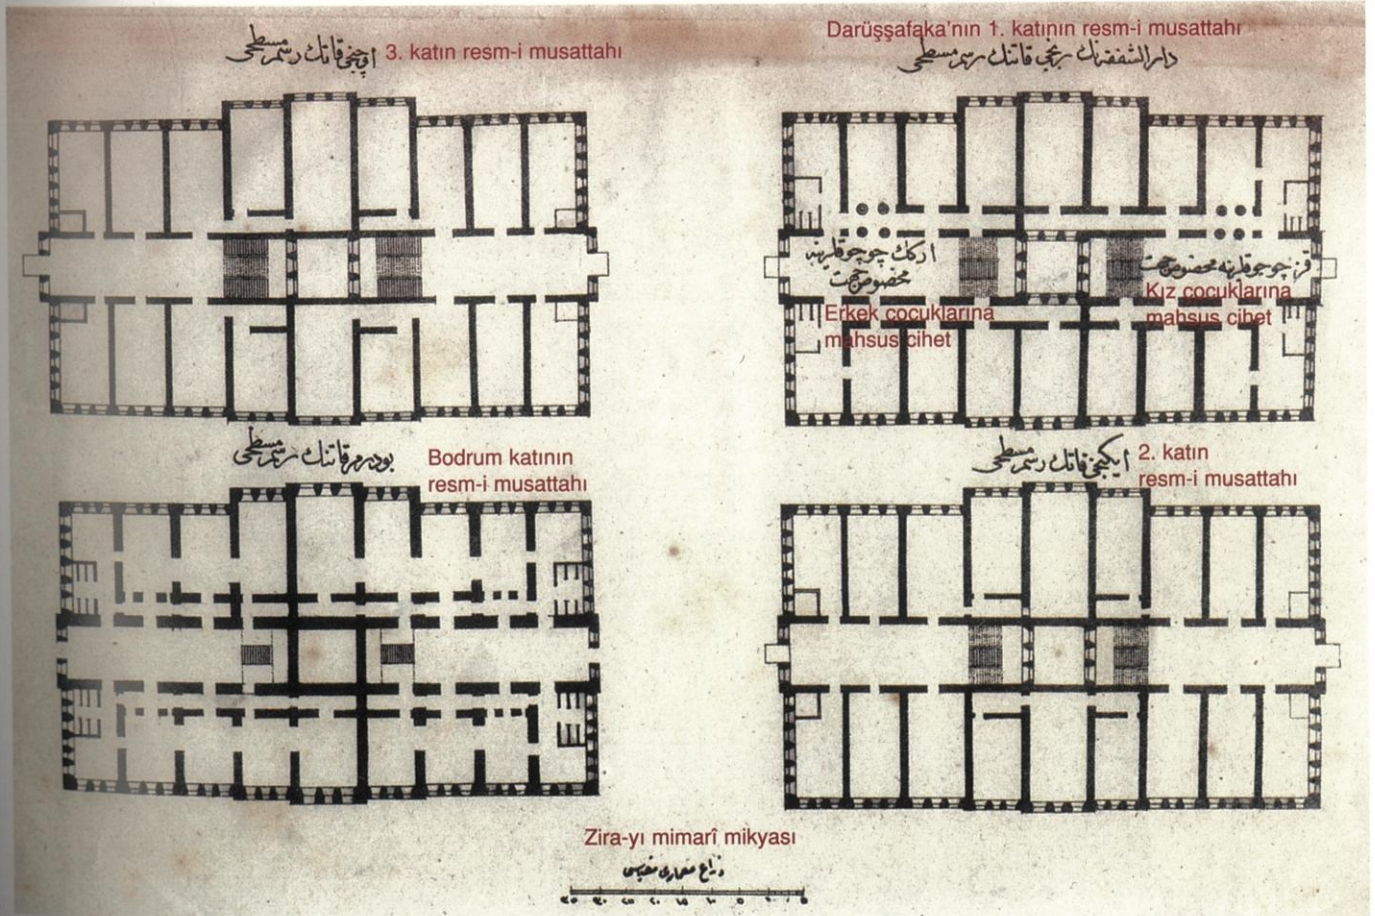 اوچنجی قاتك رسم مسطحی
3. katın resm-i musattahı
Darüşşafaka'nın 1. katının resm-i musattahı
دار الشفقه‌نك برنجی قاتنك رسم مسطحی
اركك چوجوقلرینه
مخصوص جهت
Erkek çocuklarına
mahsus cihet
قز چوجوقلرینه مخصوص جهت
Kız çocuklarına
mahsus cihet
بودروم قاتنك رسم مسطحی
Bodrum katının
resm-i musattahı
ایكنجی قاتك رسم مسطحی
2. katın
resm-i musattahı
Zira-yı mimarî mikyası
ذراع معماری مقیاسی